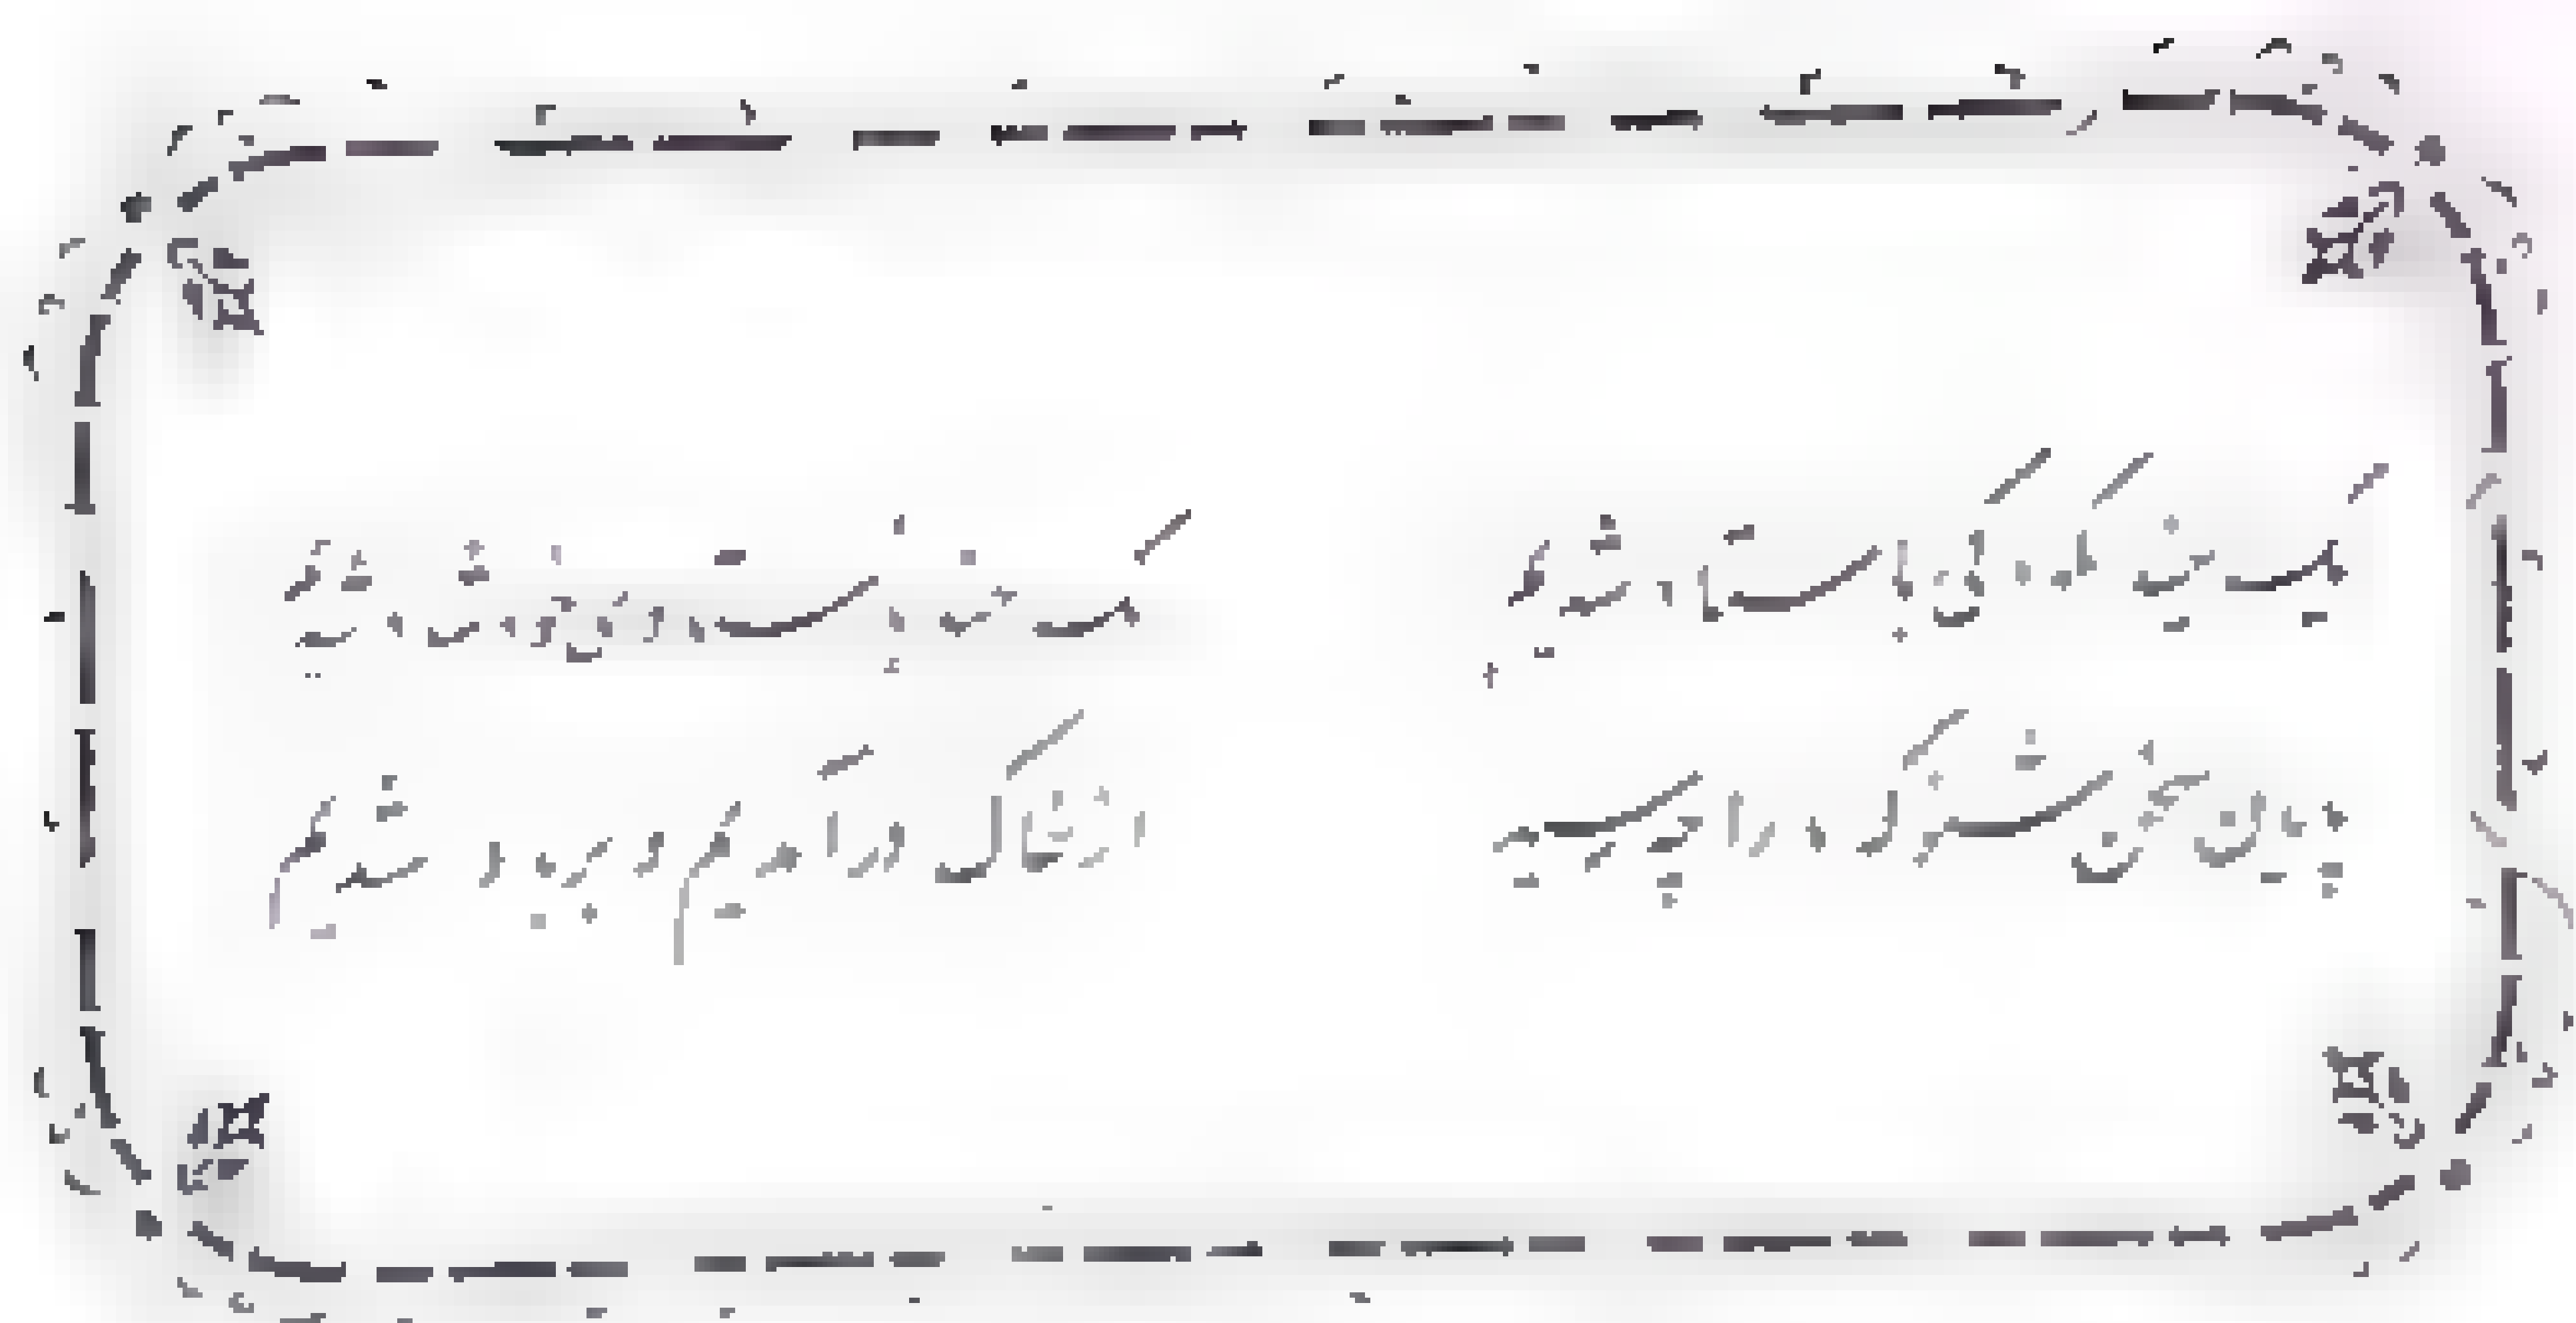 یک چند به کودکی به استاد شدیم یک چند به استادی خود شاد شدیم
پایان سخن شنو که ما را چه رسید از خاک در آمدیم و بر باد شدیم